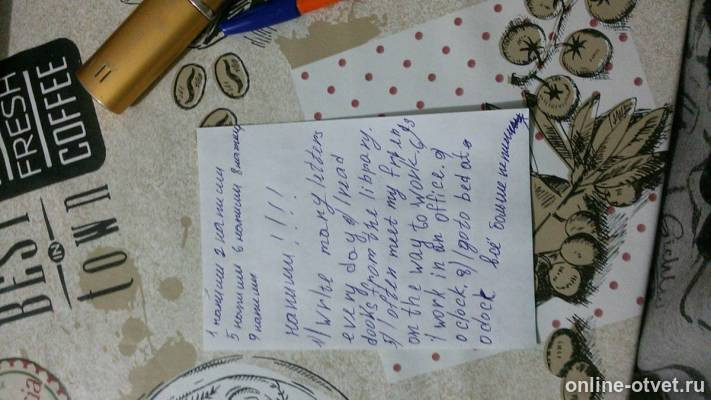 FRESH
COFFEE
BEST
IN
TOWN
1 напиши 2 напиши
5 напиши 6 напиши 8 напиши
9 напиши
напиши!!!!
1) I write many letters
every day 2) I read
books from the library.
5) I often meet my friends
on the way to work 6)
I work in an office.
o'clock. 8) I go to bed at
o'clock всё больше не пиши
online-otvet.ru